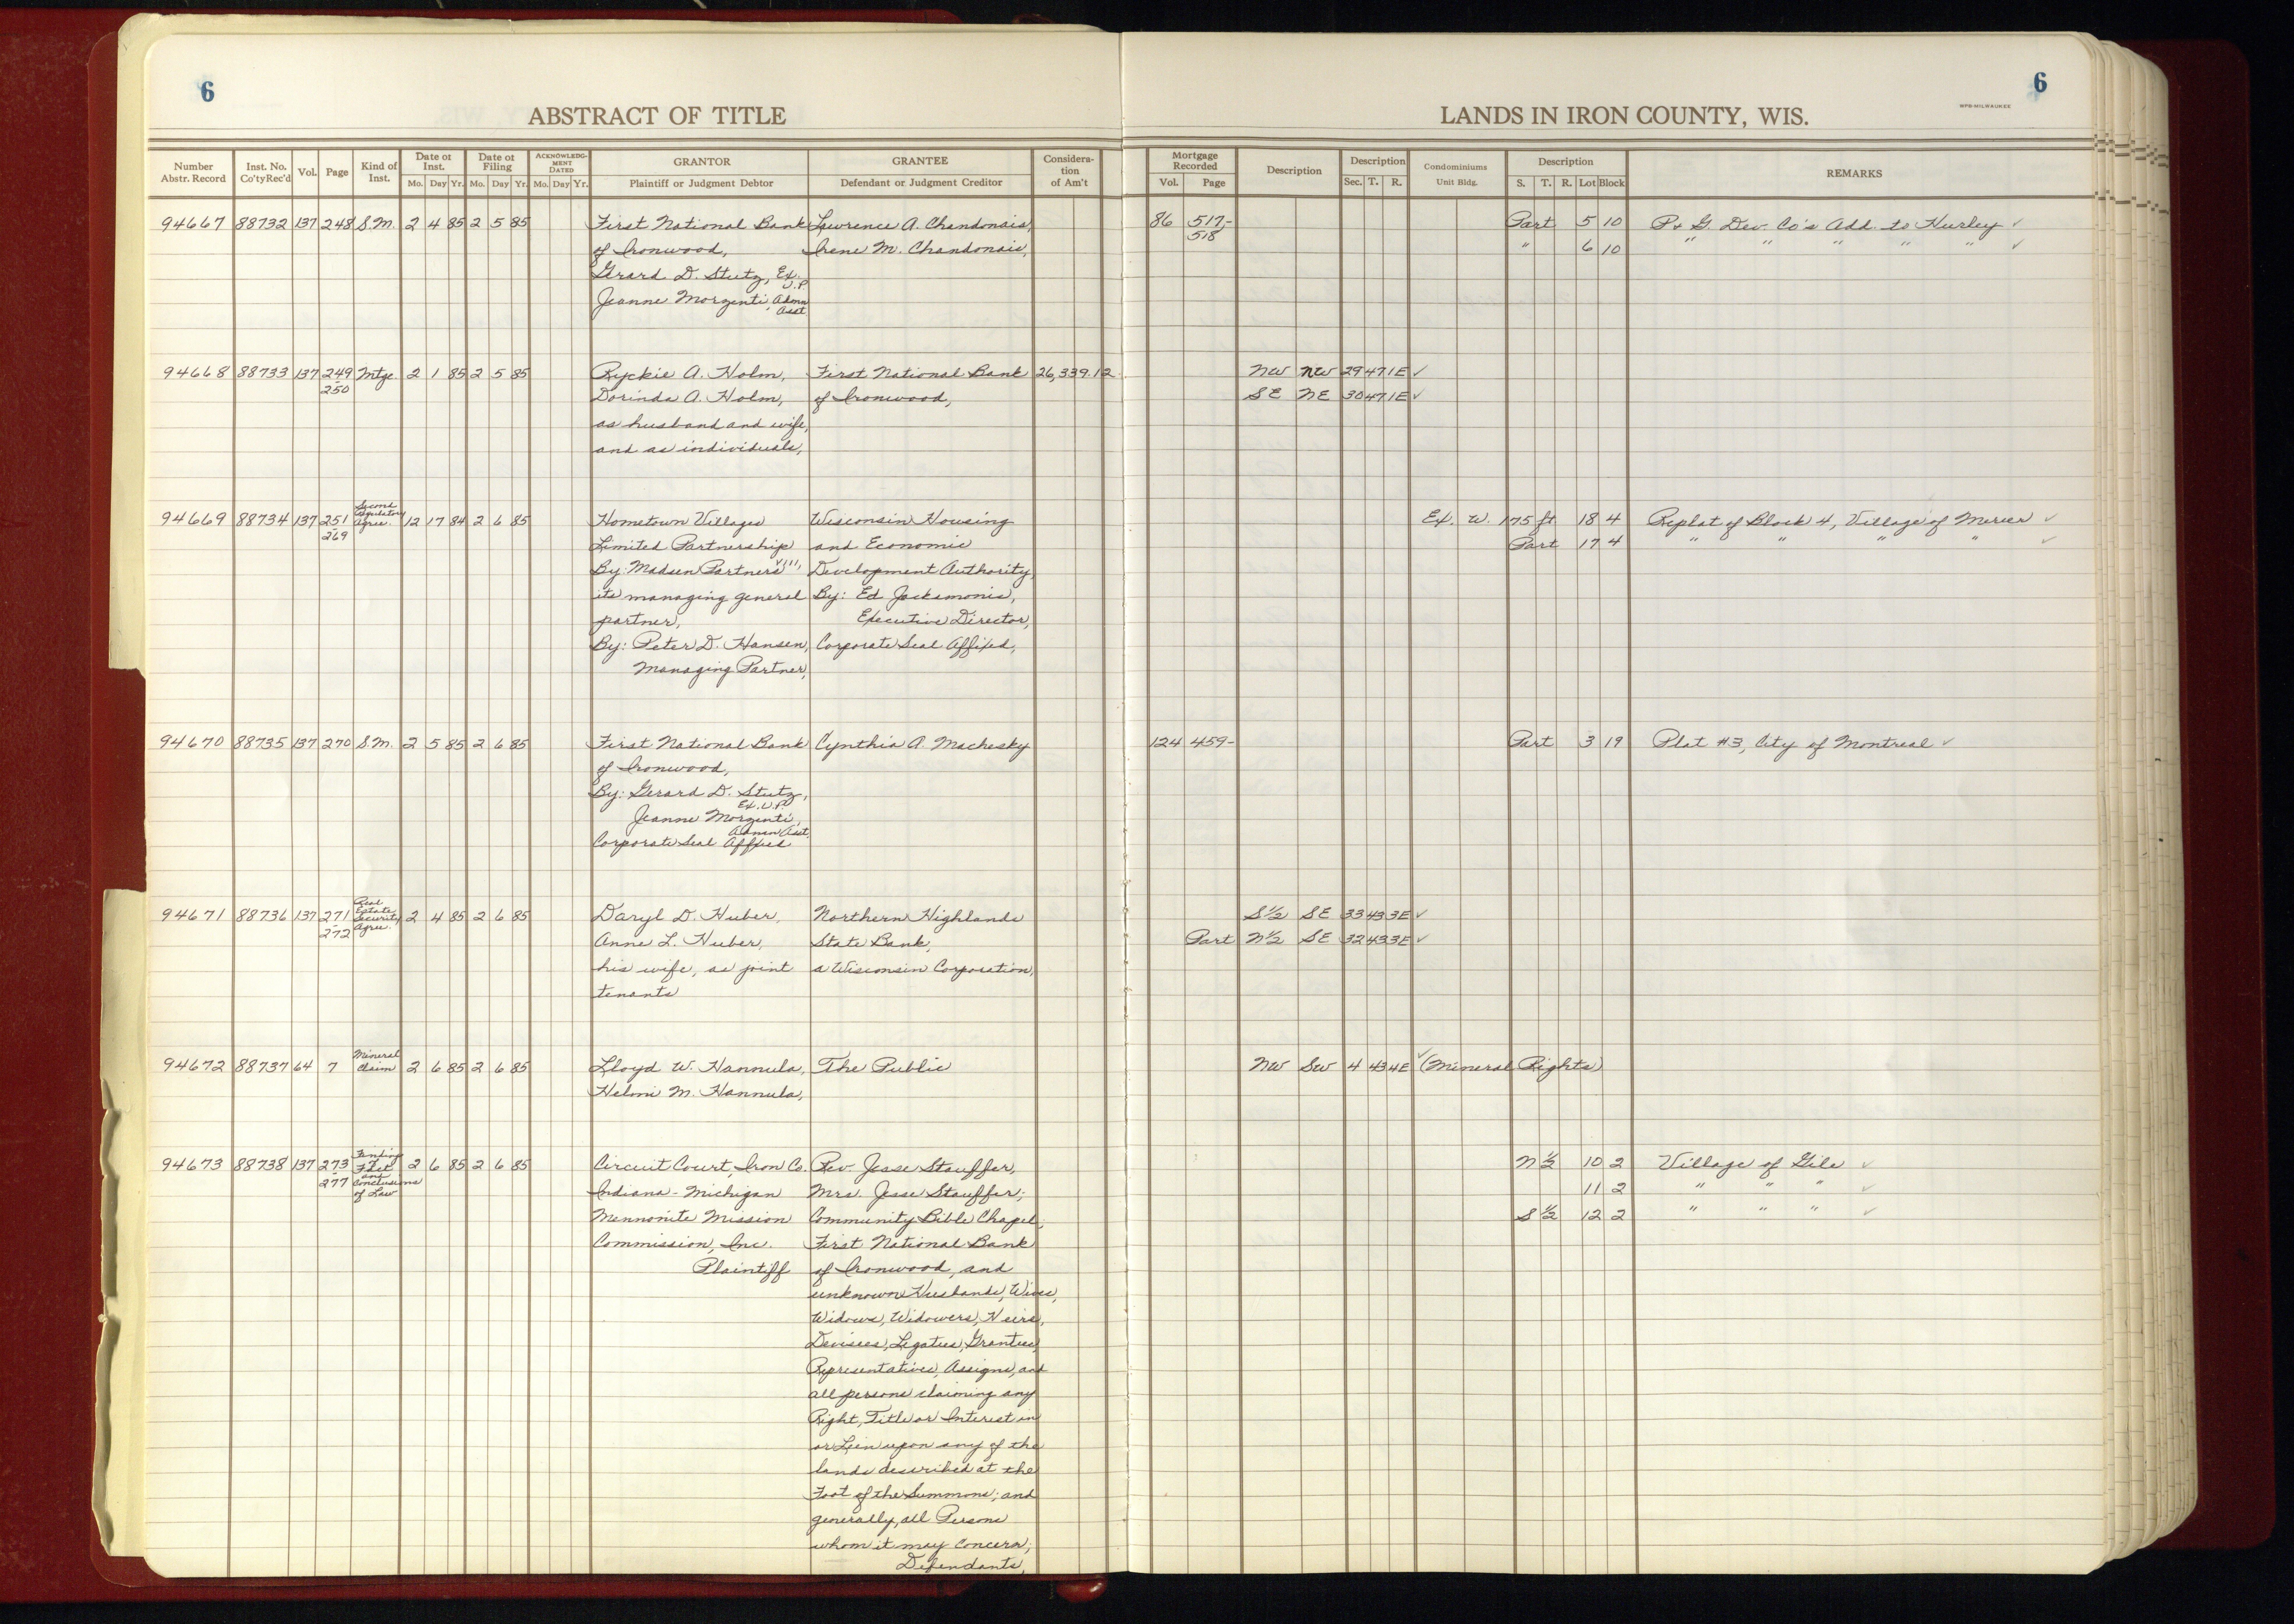 6
6
ABSTRACT OF TITLE
LANDS IN IRON COUNTY, WIS.
WPB-MILWAUKEE
Number Abstr. Record
Inst. No. Co'ty Rec'd
Vol.
Page
Kind of Inst.
Date of Inst.
Mo. Day Yr.
Date of Filing
Mo. Day Yr.
ACKNOWLEDGMENT DATED
Mo. Day Yr.
GRANTOR
Plaintiff or Judgment Debtor
GRANTEE
Defendant or Judgment Creditor
Consideration of Am't
Mortgage Recorded
Vol. Page
Description
Description
Sec. T. R.
Condominiums
Unit Bldg.
Description
S. T. R. Lot Block
REMARKS
94667 88732 137 248 S.M. 2 4 85 2 5 85 First National Bank Lawrence A. Chandonais, 86 517- Part 5 10 P. & G. Dev. Co's Add. to Hurley ✓
of Ironwood, Irene M. Chandonais, 518 " 6 10 " " " " " ✓
Gerard D. Stutz, Ex. V.P.
Jeanne Morzenti, Admn Asst
94668 88733 137 249 Mtge. 2 1 85 2 5 85 Ryckie A. Holm, First National Bank 26,339.12 NW NW 29 47 1E ✓
250 Dorinda A. Holm, of Ironwood, SE NE 30 47 1E ✓
as husband and wife,
and as individuals,
94669 88734 137 251 Second Regulatory Agree. 12 17 84 2 6 85 Hometown Villages Wisconsin Housing Ex. W. 175 ft 18 4 Replat of Block 4, Village of Mercer ✓
269 Limited Partnership and Economic Part 17 4 " " " " ✓
By: Madsen Partners VIII, Development Authority,
its managing general By: Ed Jacksmonis,
partner, Executive Director,
By: Peter D. Hansen, Corporate Seal Affixed,
Managing Partner,
94670 88735 137 270 S.M. 2 5 85 2 6 85 First National Bank Cynthia A. Machesky 124 459- Part 3 19 Plat #3, City of Montreal ✓
of Ironwood,
By: Gerard D. Stutz,
Ex. V.P.
Jeanne Morzenti,
Admn Asst.
Corporate Seal Affixed
94671 88736 137 271 Real Estate Security Agree. 2 4 85 2 6 85 Daryl D. Huber, Northern Highlands S½ SE 33 43 3E ✓
272 Anne L. Huber, State Bank, Part N½ SE 32 43 3E ✓
his wife, as joint a Wisconsin Corporation,
tenants
94672 88737 64 7 Mineral Claim 2 6 85 2 6 85 Lloyd W. Hannula, The Public NW SW 4 43 4E ✓ (Mineral Rights)
Helmi M. Hannula,
94673 88738 137 273 Findings of Fact and Conclusions of Law 2 6 85 2 6 85 Circuit Court, Iron Co. Rev. Jesse Stauffer, N½ 10 2 Village of Gile ✓
277 Indiana - Michigan Mrs. Jesse Stauffer; 11 2 " " " ✓
Mennonite Mission Community Bible Chapel, S½ 12 2 " " " ✓
Commission, Inc. First National Bank
Plaintiff of Ironwood, and
unknown Husbands, Wives,
Widows, Widowers, Heirs,
Devisees, Legatees, Grantees,
Representatives, Assigns, and
all persons claiming any
Right, Title or Interest in
or Lien upon any of the
lands described at the
Foot of the Summons; and
generally, all Persons
whom it may Concern;
Defendants,